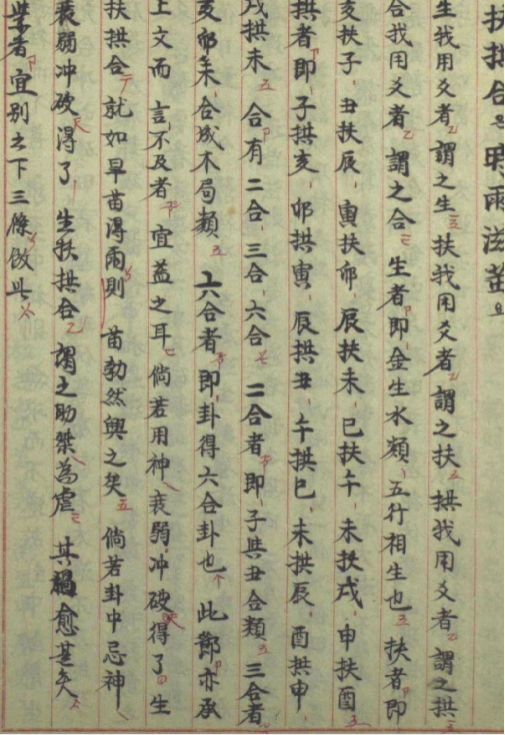 扶拱合 時雨滋苗
生我用爻者 謂之生 扶我用爻者 謂之扶 拱我用爻者 謂之拱
合我用爻者 謂之合 生者即金生水類 五行相生也 扶者即
亥扶子 丑扶辰 寅扶卯 辰扶未 巳扶午 未扶戌 申扶酉
拱者即 子拱亥 卯拱寅 辰拱丑 午拱巳 未拱辰 酉拱申
戌拱未 合有二合 三合 六合 二合者 即子與丑合類 三合者
亥卯未 合成木局類 六合者 即卦得六合卦也 此節亦承
上文而 言不及者 宜益之耳 倘若用神 衰弱冲破得了 生
扶拱合 就如旱苗得雨則 苗勃然興之矣 倘若卦中忌神
衰弱冲破得了 生扶拱合 謂之助桀為虐 其禍愈甚矣
學者宜別之下三條倣此